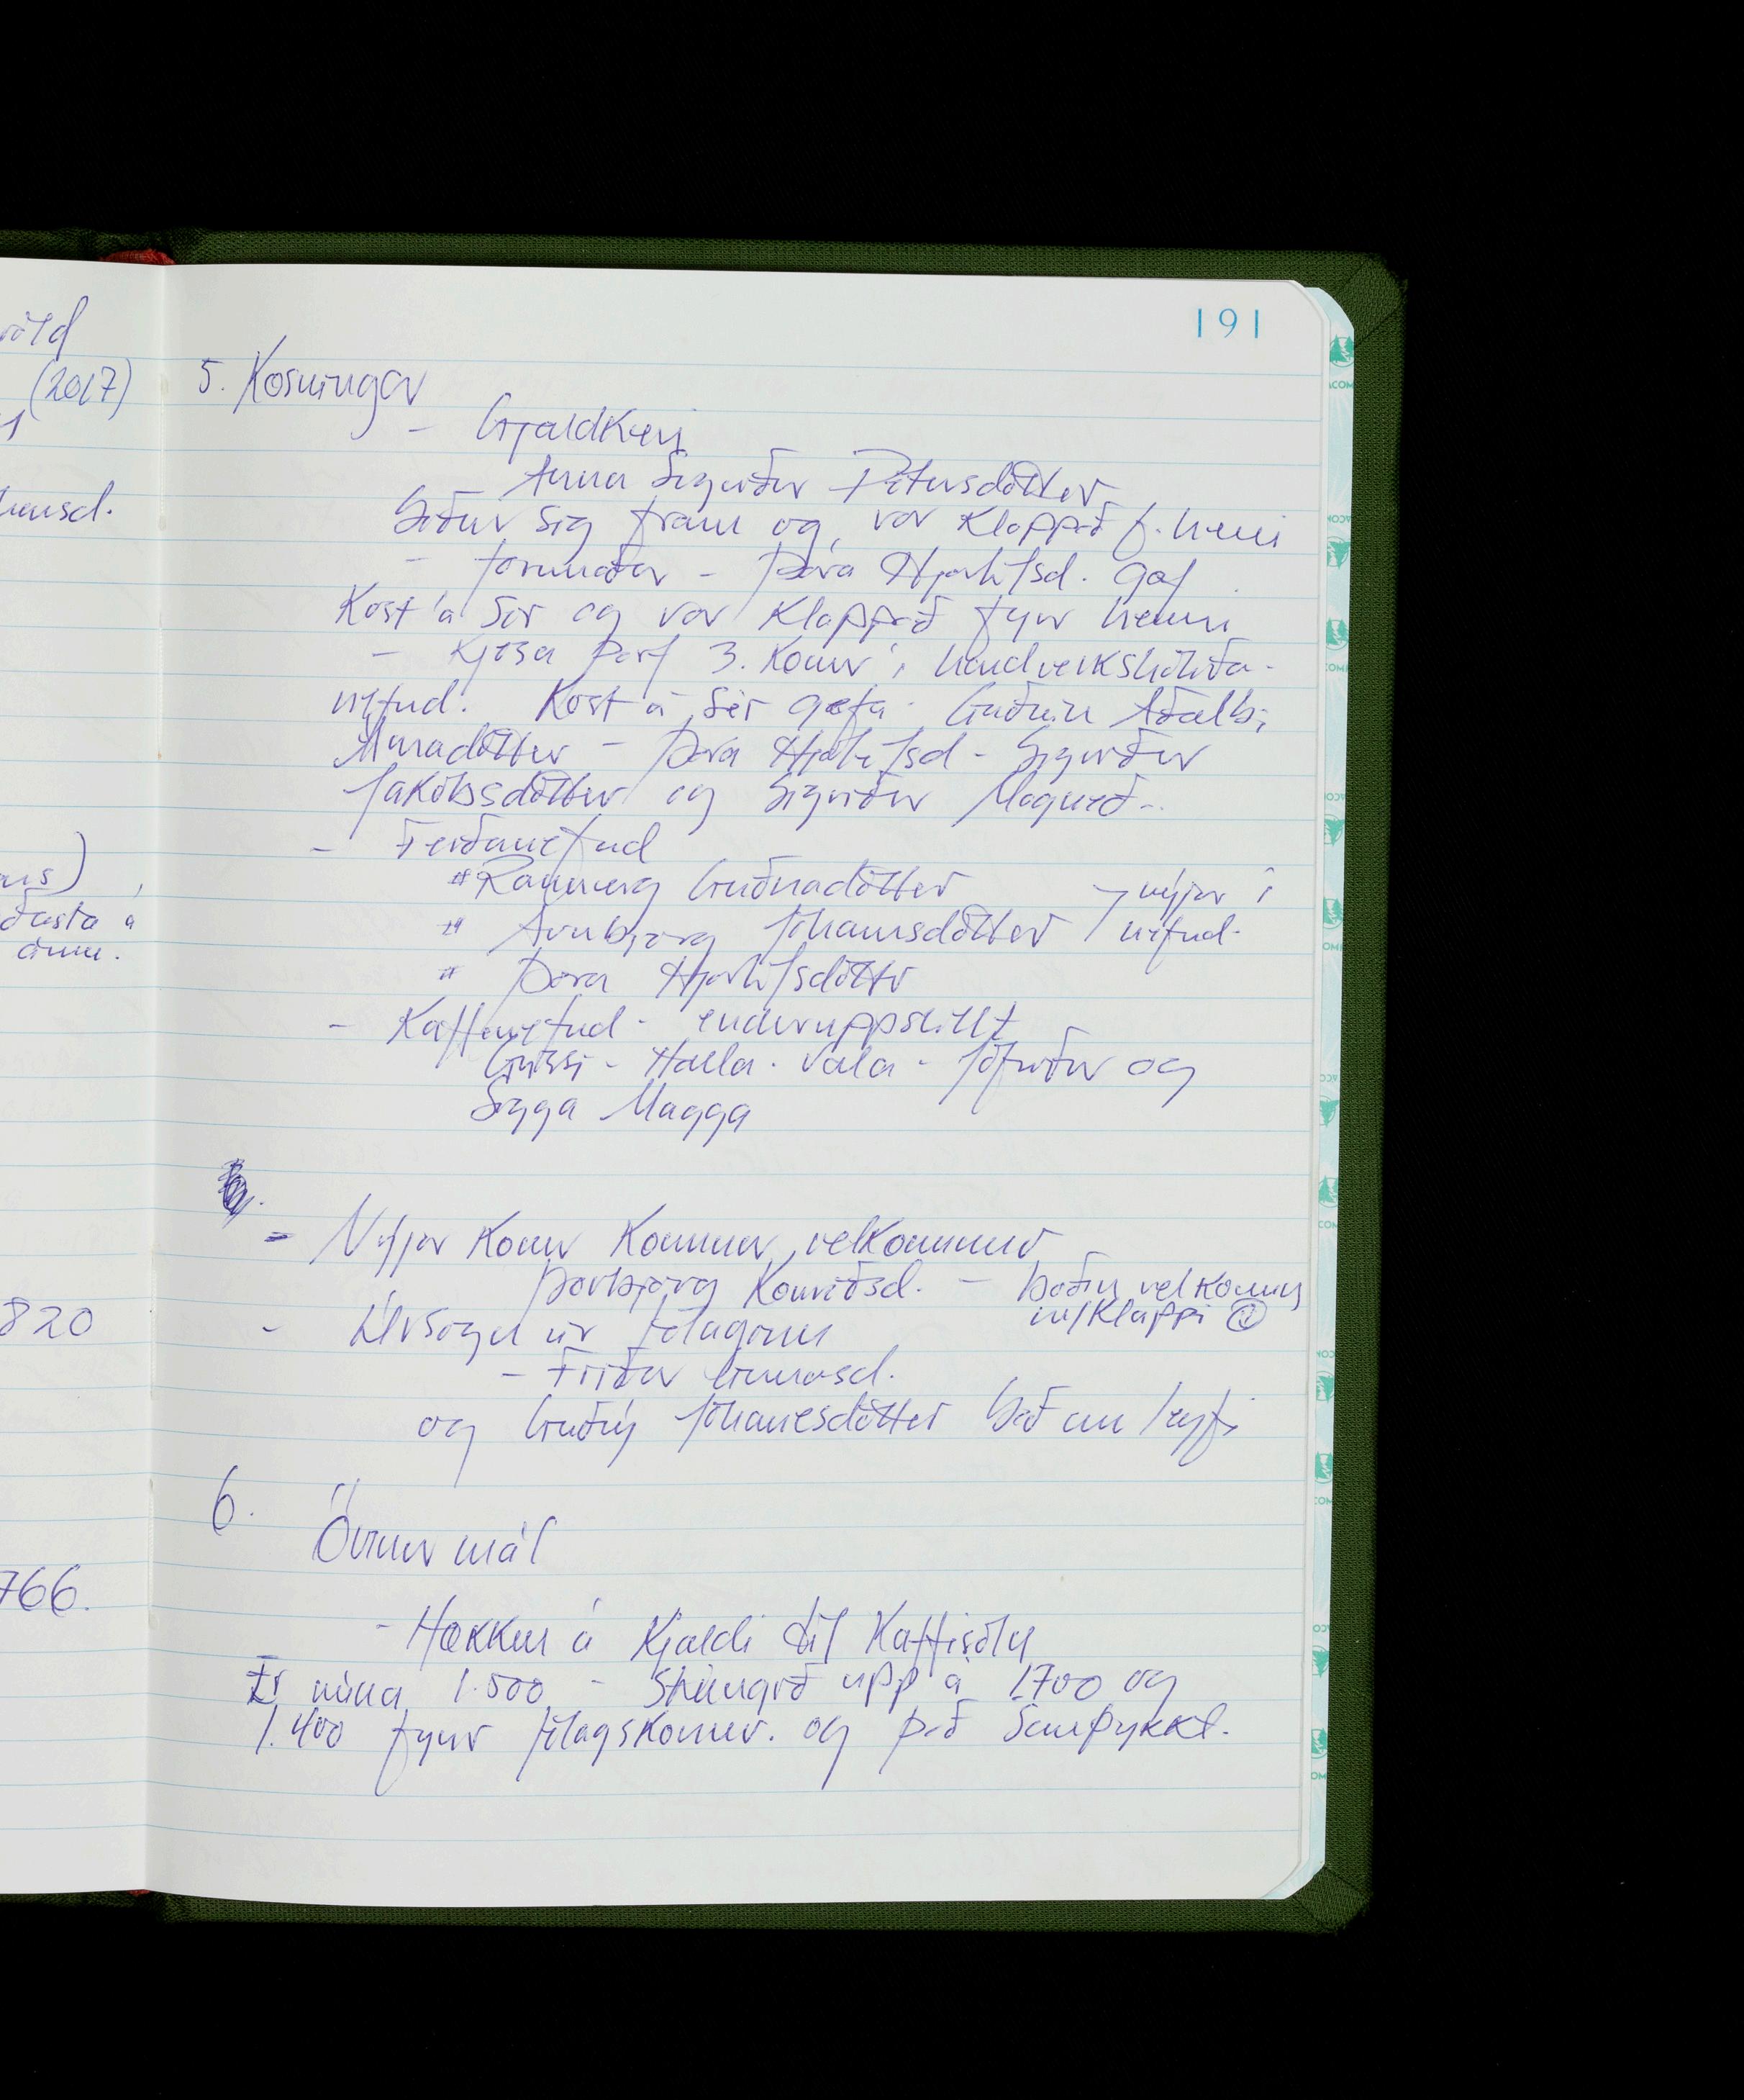 191
völd
(2017)
5. Kosningar
- Gjaldkeri
Anna Sigríður Pétursdóttir
býður sig fram og var klappað f. henni
- formaður - Þóra Hjörleifsd. gaf
kost á sér og var klappað fyrir henni
- kjósa þarf 3. konur í handverkshátíða-
nefnd. Kost á sér gefa. Guðrún Aðalbj
Þóra Hjörleifsd - Sigríður
Jakobsdóttir og Sigríður Magneð..
- Ferðanefnd
# Rannveig Guðnadóttir
nýjar í
# Arnbjörg Jóhannsdóttir
nefnd.
# Þóra Hjörleifsdóttir
- Kaffinefnd - enduruppstillt
Gussi - Halla. Vala - Jófríður og
Sigga Magga
- Nýjar konur komnar, velkomnar
Þorbjörg Konráðsd. - boðin velkomin
m/klappi
- Úrsögn úr félaginu
- Fríður
og Guðný Jóhannesdóttir bað um leyfi
6.
Önnur mál
- Hækkun á gjaldi til kaffisölu
Er núna 1.500 - stungið upp á 1700 og
1.400 fyrir félagskonur. og það samþykkt.
ðasta á
önnu.
820
766.